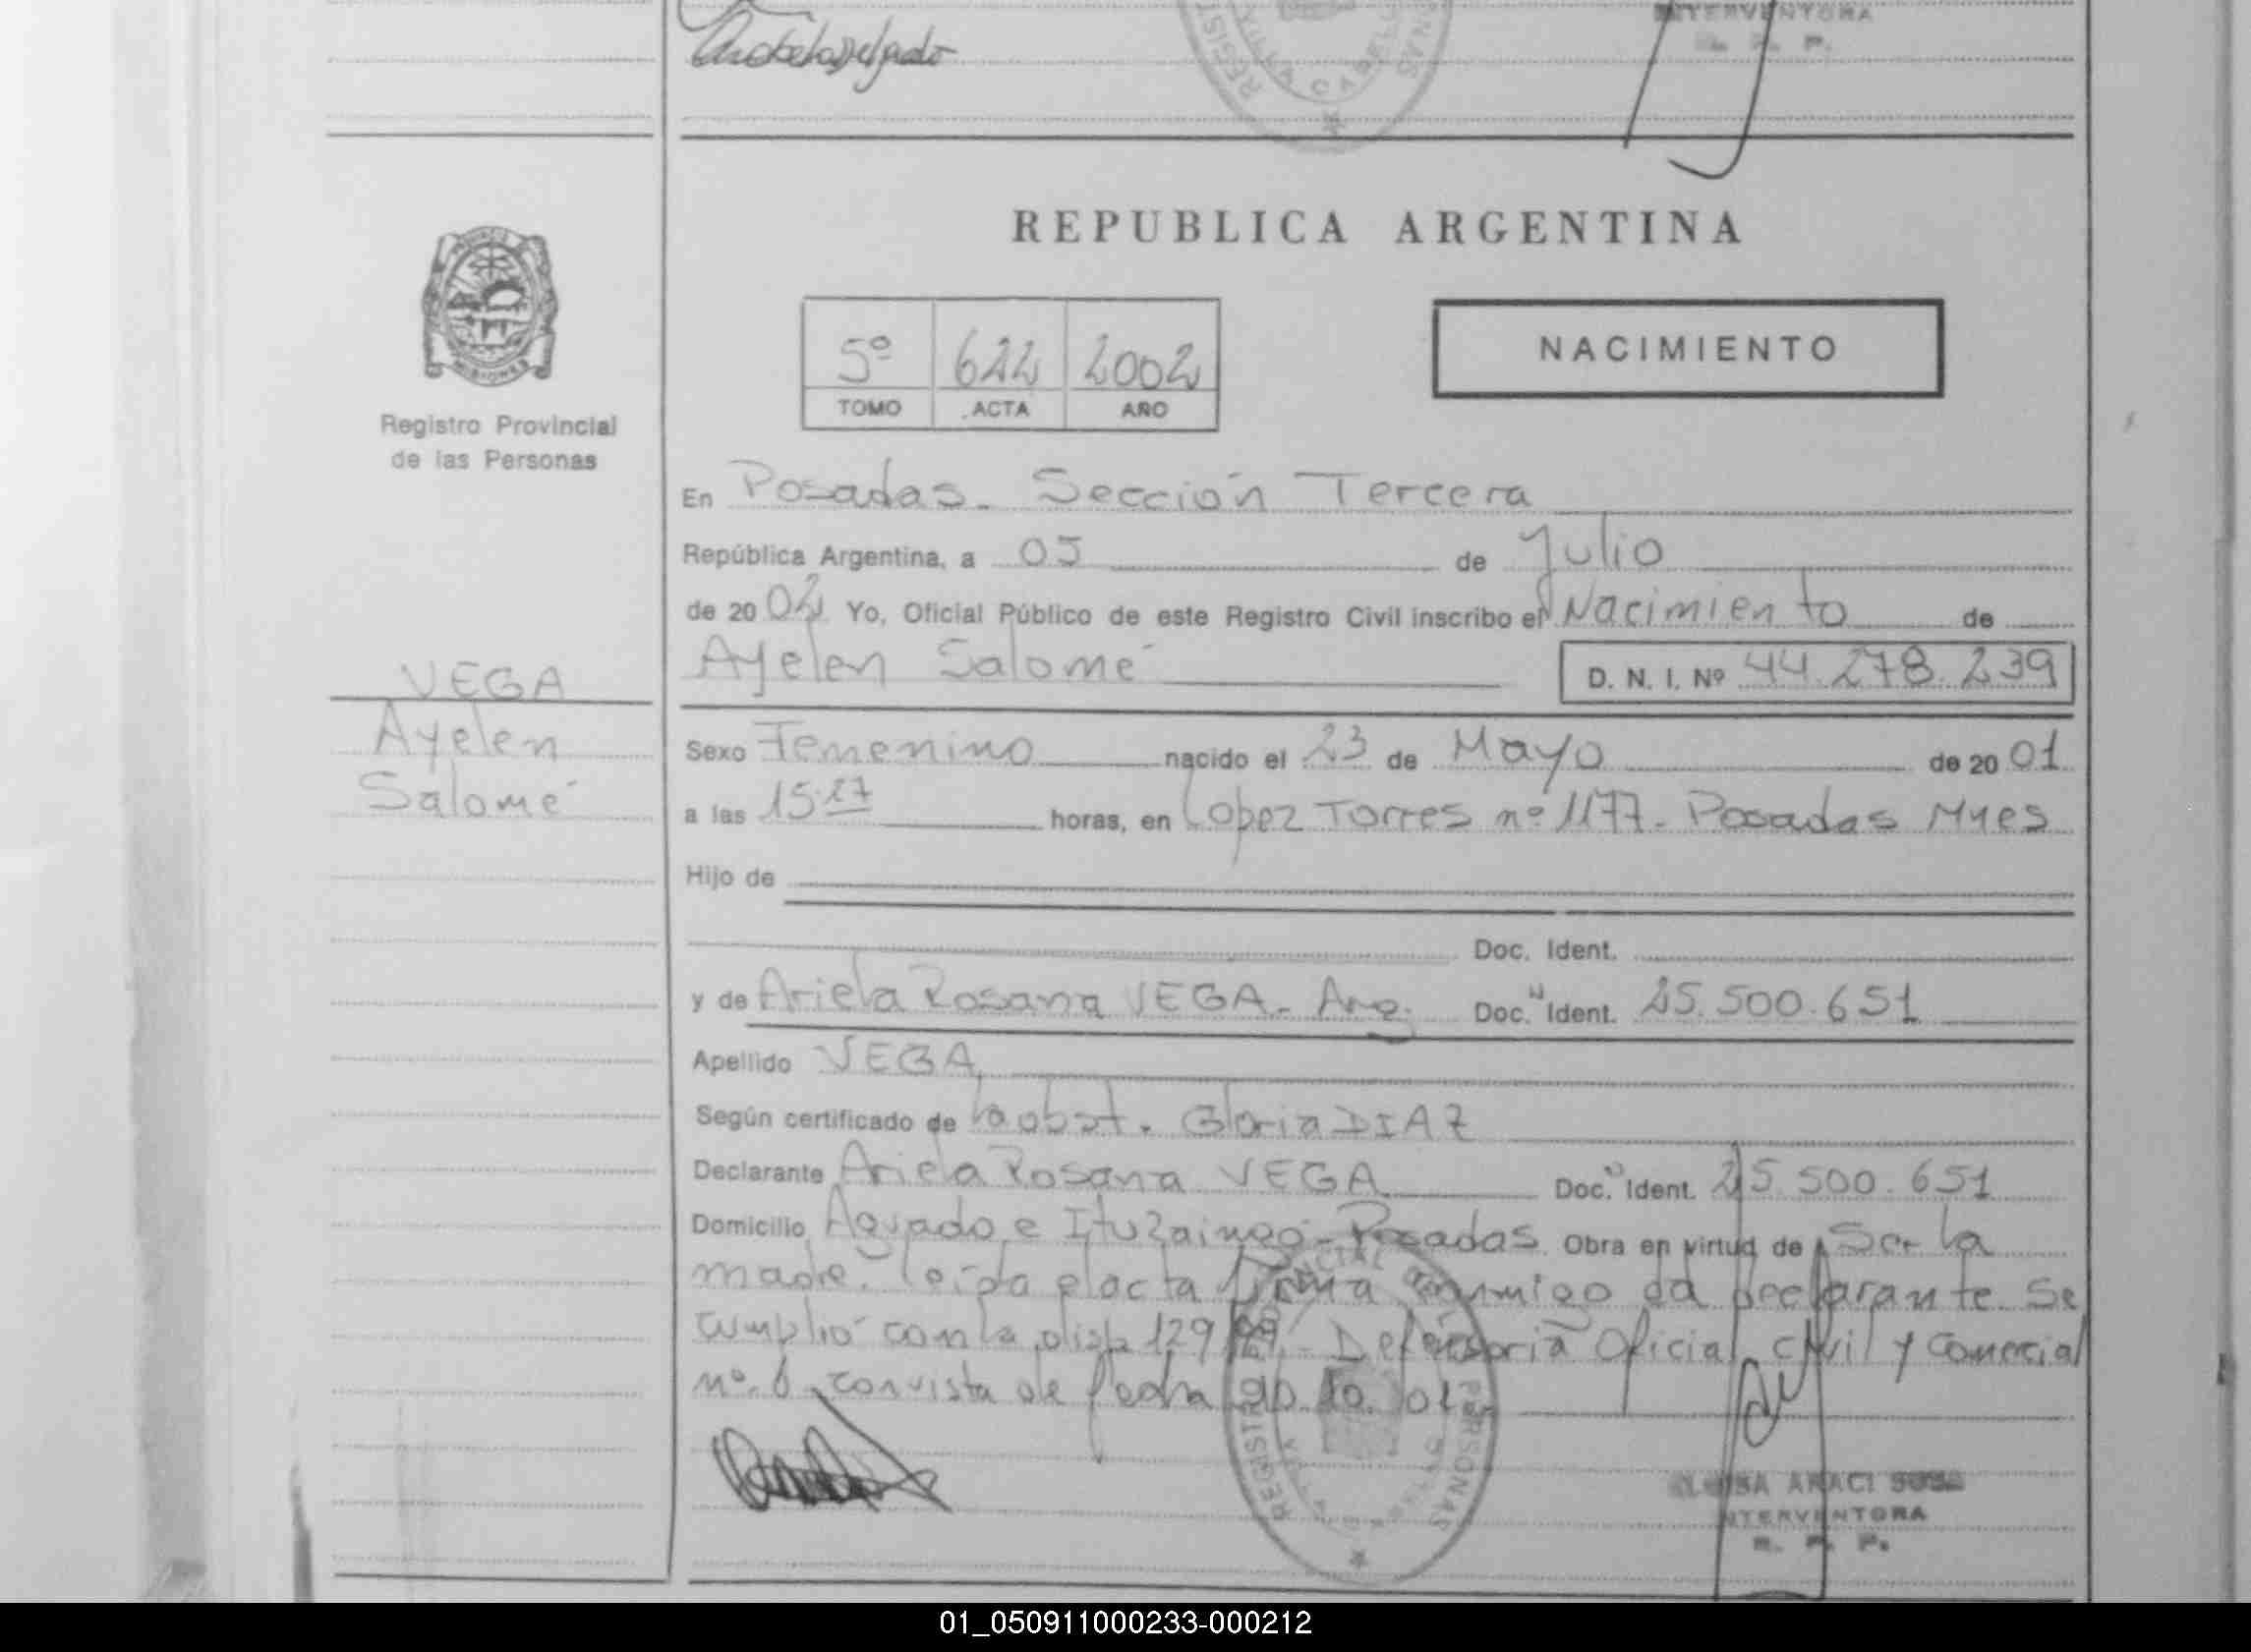 INTERVENTORA
R. P. P.
REPUBLICA ARGENTINA
5º 622 2002
TOMO ACTA AÑO
NACIMIENTO
MISIONES
Registro Provincial
de las Personas
En Posadas - Sección Tercera
República Argentina, a 05 de Julio
de 20 02 Yo, Oficial Público de este Registro Civil inscribo el Nacimiento de
Ayelen Salomé D. N. I. Nº 44.278.239
VEGA
Ayelen
Salomé
Sexo Femenino nacido el 23 de Mayo de 20 01
a las 15:27 horas, en Lopez Torres nº 1177 - Posadas Mnes
Hijo de
Doc. Ident.
y de Ariela Rosana VEGA - Arg. Doc. Ident. 25.500.651
Apellido VEGA
Según certificado de la obst. Gloria DIAZ
Declarante Ariela Rosana VEGA Doc. Ident. 25.500.651
Domicilio Aguado e Ituzaingó - Posadas Obra en virtud de Ser la
madre. leída el acta firma conmigo la declarante. Se
cumplió con la disp 129/89 - Defensoria Oficial Civil y Comercial
nº 6 con vista de fecha
REGISTRO PROVINCIAL DE LAS PERSONAS
INTERVENTORA
R. P. P.
01_050911000233-000212